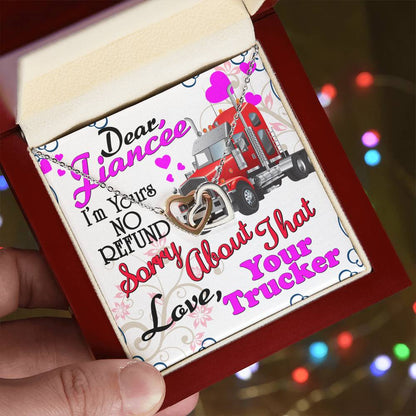 Dear,
Fiancee
I'm Yours
NO
REFUND
Sorry About That
Love, Your
Trucker